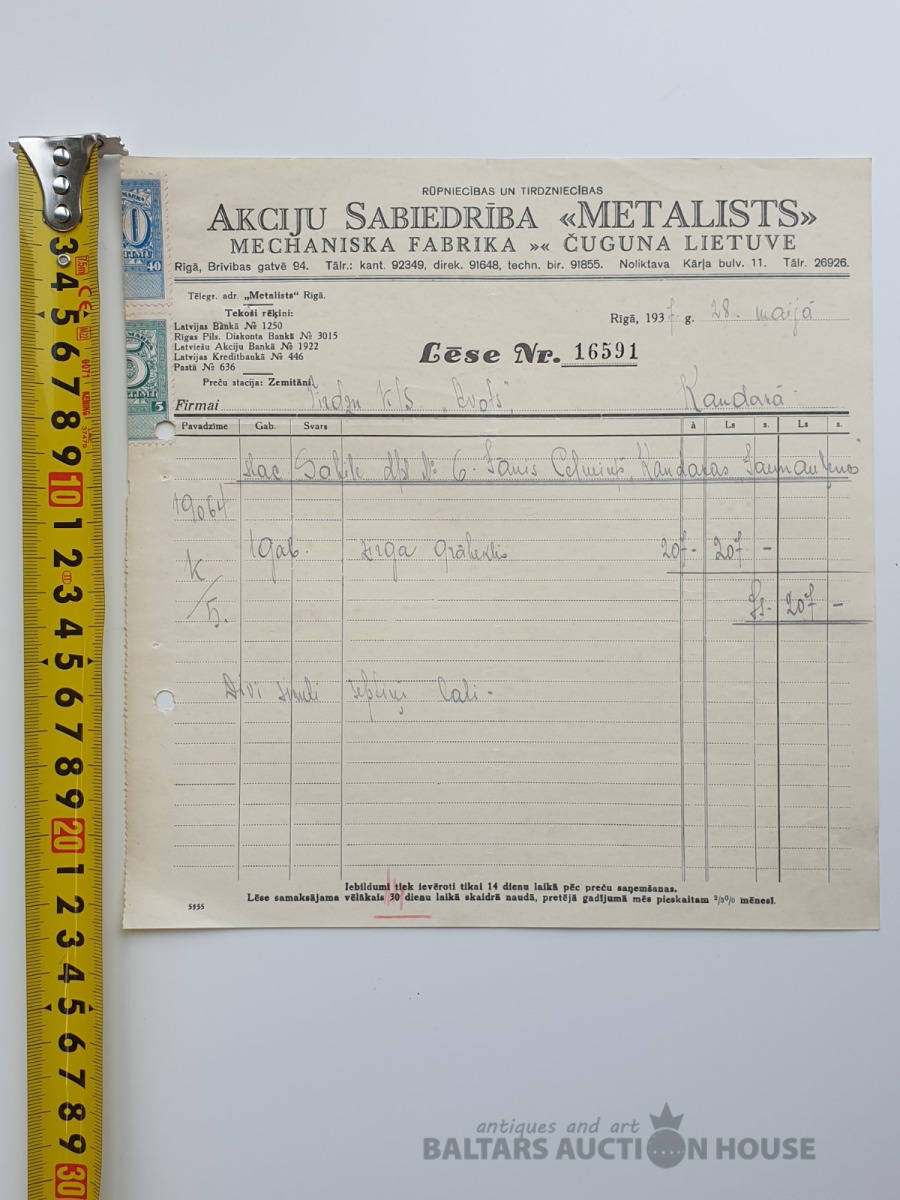 RŪPNIECĪBAS UN TIRDZNIECĪBAS
AKCIJU SABIEDRĪBA «METALISTS»
MECHANISKA FABRIKA »« ČUGUNA LIETUVE
Rīgā, Brīvības gatvē 94. Tālr.: kant. 92349, direk. 91648, techn. bir. 91855. Noliktava Kārļa bulv. 11. Tālr. 26926.
40
Tēlegr. adr. „Metalists" Rīgā.
Tekoši rēķini:
Latvijas Bankā № 1250
Rīgas Pils. Diskonta Bankā № 3015
Latviešu Akciju Bankā № 1922
Latvijas Kreditbankā № 446
Pastā № 636
Preču stacija: Zemitāni
Rīgā, 1937 g. 28. maijā
Lēse Nr. 16591
5
5
Firmai Tirdzn k/S Kandavā
Pavadzīme Gab. Svars à Ls s. Ls s.
stac Sabile № 6. Jānis Celmiņš, Kandavas
19064
1 gab. zirga grābeklis 207- 207 -
k/5.
Ls. 207 -
Divi simti septiņi lati -
Iebildumi tiek ievēroti tikai 14 dienu laikā pēc preču saņemšanas.
Lēse samaksājama vēlākais 30 dienu laikā skaidrā naudā, pretējā gadījumā mēs pieskaitam 2/3% mēnesī.
5955
3 4 5 6 7 8 9 10 1 2 3 4 5 6 7 8 9 20 1 2 3 4 5 6 7 8 9 30
antiques and art
BALTARS AUCTION HOUSE